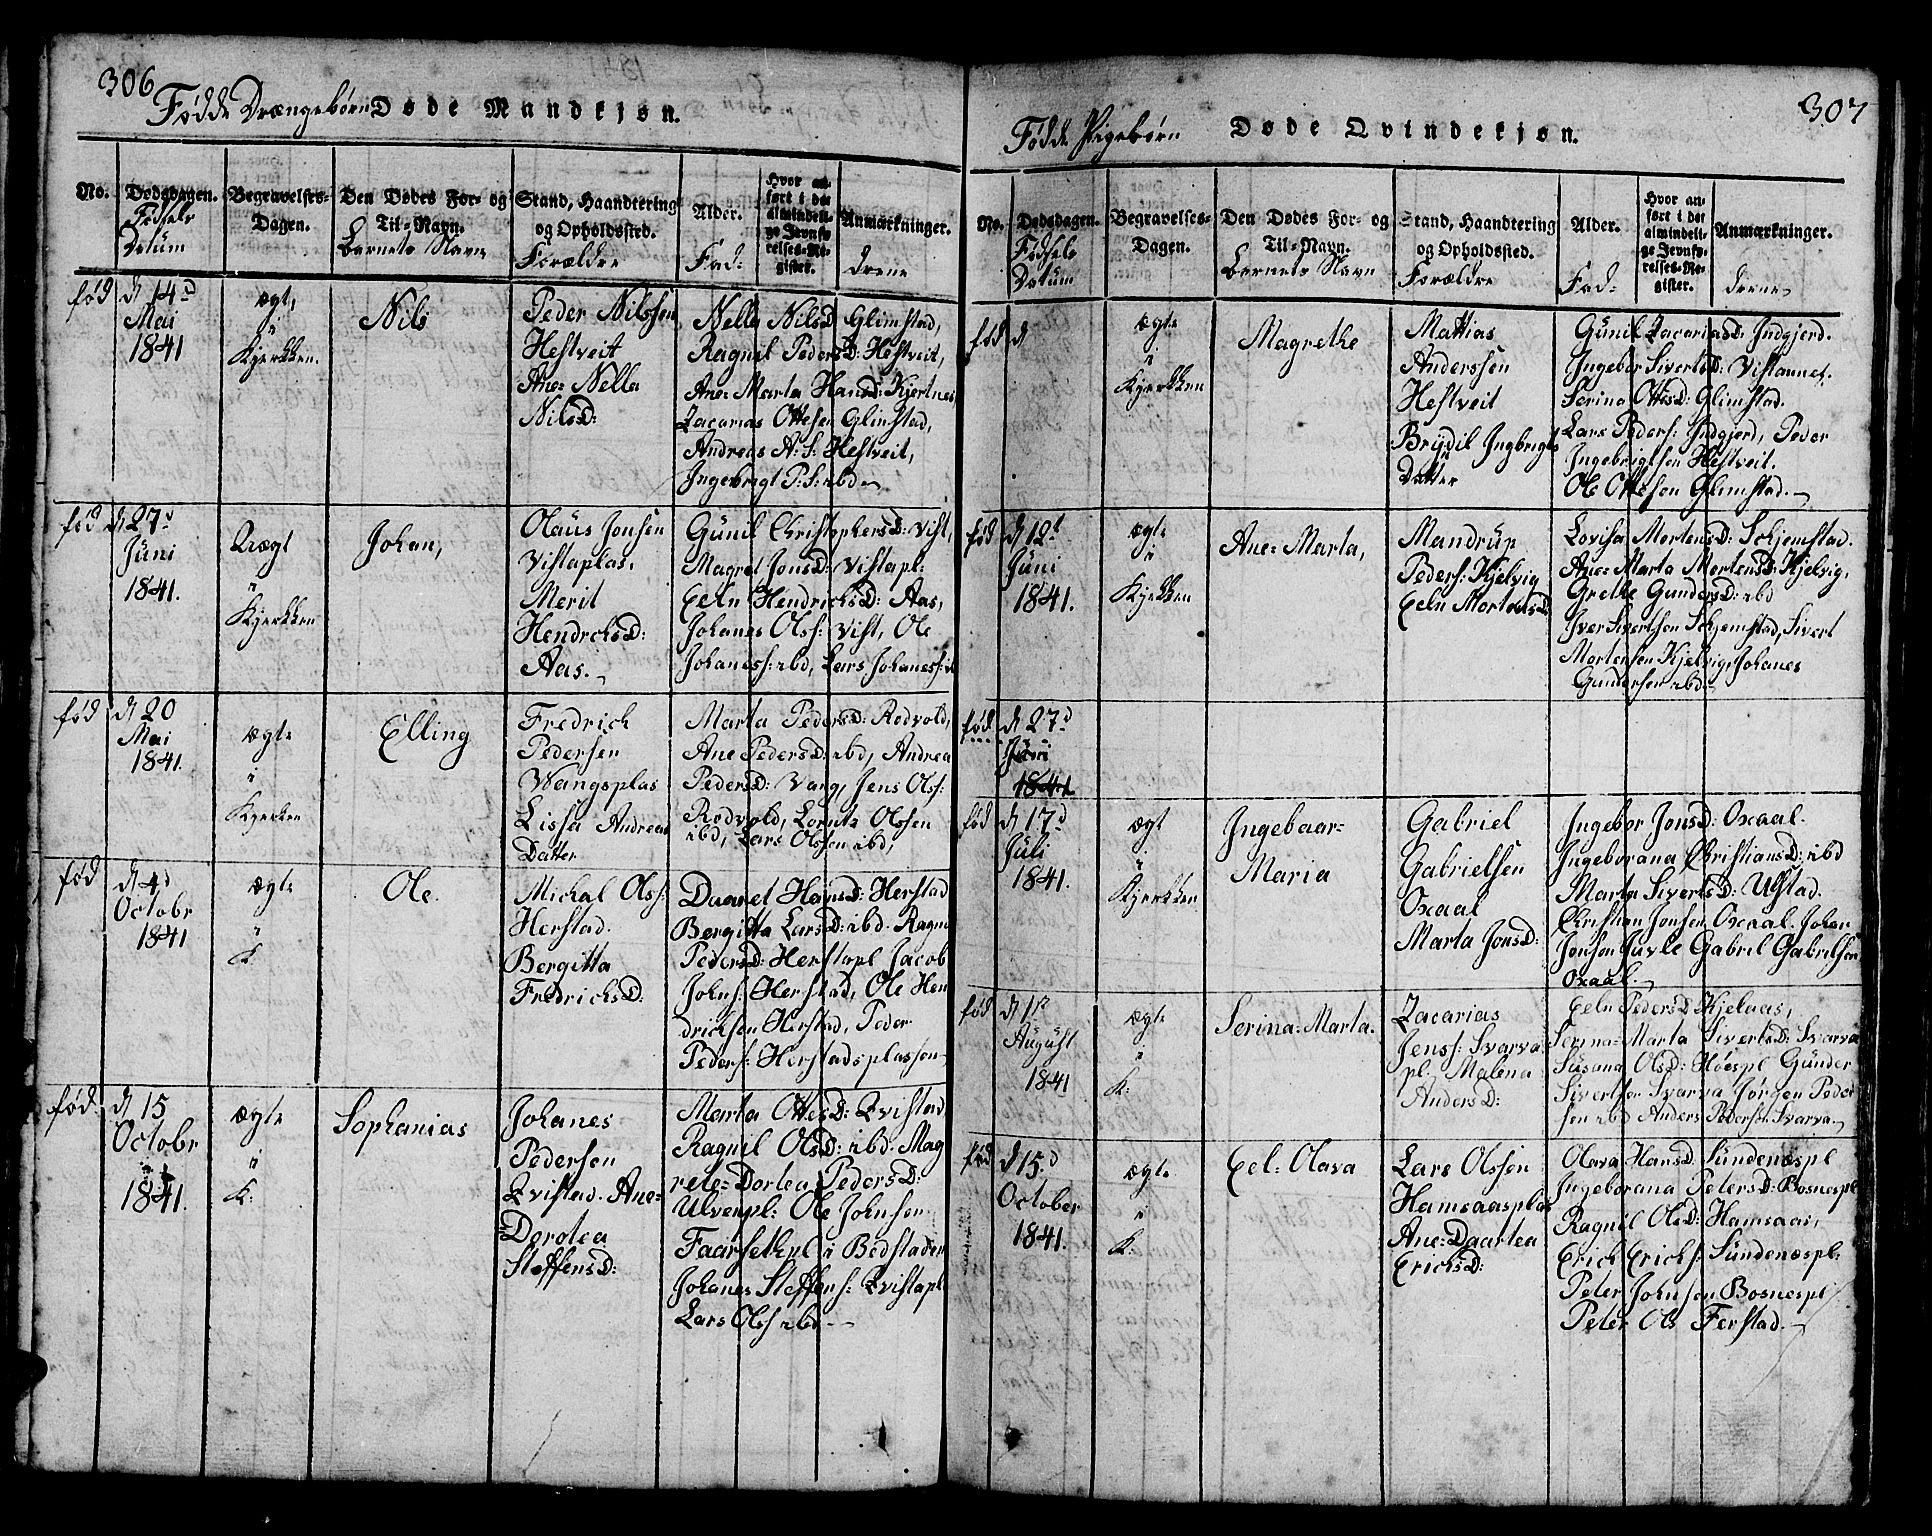 306
Fødde Drængebørn Døde Mandkjøn.
No.
Dødsdagen.
Fødsels
Datum
Begravelses-
Dagen.
Den Dødes For- og
Til-Navn.
Barnets Navn
Stand, Haandtering
og Opholdssted.
Forældre
Alder.
Fad:
Hvor an-
ført i det
almindeli-
ge Jevnfø-
relses-Re-
gister.
Anmærkninger.
drene
fød
d 14d
Mai
1841
ægt,
ü
Kjerkken.
Nils
Peder Nilssen
Hestveit
Ane: Nella
NilsD:
Nella NilsD Glimstad,
Ragnil PedersD: Hestveit,
Ane: Marta HansD: Kjertnes
Zacarias Ottesen Glimstad,
Andreas A: S: Hestveit,
Ingebrigt P: S: ibd
fød
d 27d
Jüni
1841.
Uægt
ü
Kjerkken
Johan,
Olaüs Jonsen
Vistaplas,
Merit
HendrichsD:
Aas.
Günil ChristophersD: Vist,
Magret JonsD: Vistapl:
Eeln HendrichsD: Aas,
Johanes Olss: Vist, Ole
Johaness: ibd, Lars Johaness:
fød
d 20
Mai
1841.
ægte
ü
Kjerken
Elling
Fredrich
Pedersen
Wangsplas
Lissa Andreas
Datter
Marta PedersD: Rodvold,
Ane PedersD: ibd, Andrea
PedersD: Vang, Jens Ols:
Rodvold, Lornts Olssen
ibd, Lars Olssen ibd,
fød
d 4d
Octobr
1841
ægte
ü
K
Ole.
Michal Olss:
Herstad.
Bergitta
FredrichsD:
Duaret HansD: Herstad
Bergitta LarsD: ibd. Ragni
PedersD: Herstapl Jacob
Johns: Herstad, Ole Hen
drichsen Herstad, Peder
Peders: Herstadsplassen
fød.
d 15
Octobr
1841.
ægte
ü
K:
Sophanias
Johanes
Pedersen
Qvistad. Ane=
Dorotea
SteffensD:
Marta OttesD: Qvistad
Ragnil OlsD: ibd. Mag
rete= Dortea PedersD:
Ulvenpl: Ole Johnsen
Faarsethpl i Bedstaden
Johanes Steffens: Qvistapl
Lars Olss ibd
307
Fødde Pigebørn Døde Qvindekjøn.
No.
Dødsdagen.
Fødsels
Datum
Begravelses-
Dagen.
Den Dødes For- og
Til-Navn.
Barnets Navn
Stand, Haandtering
og Opholdssted.
Forældre
Alder.
Fad:
Hvor an-
ført i det
almindeli-
ge Jevnfø-
relses-Re-
gister.
Anmærkninger.
drene
fød
d
ægte
ü
Kjerkken
Magrethe
Mattias
Anderssen
Hestveit
Brÿdil Ingbrigts
Datter
Günil ZacariasD: Indgjerd.
Ingebor SivertsD:
Serina OttesD: Glimstad.
Lars Peders: Indgjerd, Peder
Ingebrigtsen Hestveit.
Ole Ottesen Glimstad.
fød
d 12t
Jüni
1841.
ægte
ü
Kjerkken
Ane= Marta,
Mandrup
Peders: Kjelvig
Eeln MortensD
Lovisa MortensD: Schjemstad.
Ane= Marta MortensD: Kjelvig,
Grethe GundersD: ibd
Iver Sivertsen Schjemstad, Sivert
Mortensen Kjelvig, Johanes
Gundersen ibd
fød
d 27d
Jüni
1841
fød
d 17d
Jüli
1841.
ægt
ü
Kjerkken
Ingebaar=
Maria
Gabriel
Gabrielsen
Oxaal
Marta JonsD:
Ingebor JonsD: Oxaal.
Ingeborana ChristiansD: ibd
Marta SivertsD: Ulstad.
Christian Jonsen Oxaal. Johan
Jonsen Juvle Gabriel Gabrilsen
Oxaal.
fød
d 1st
Aügüst
1841
ægte
ü
K:
Serina= Marta.
Zacarias
Jenss: Svarva
pl. Malena
AndersD:
Eeln PedersD Kjelaas,
Serina= Marta SivertsD: Svarva
Süsana OlsD: Høespl Günder
Sivertsen Svarva Jørgen Peder
sen ibd Anders Pedersen Svarva.
fød
d 15.d
October
1841.
ægte
ü
K:
Eel= Olava
Lars Olssen
Hamsaasplas
Ane= Daartea
ErichsD:
Olava HansD: Sündenæspl
Ingeborana PetersD: Bosnespl
Ragnil OlsD: Hamsaas,
Erich Erichs: Sündenæspl:
Peter Johnsen Bosnespl
Peter Ols Ferstad.